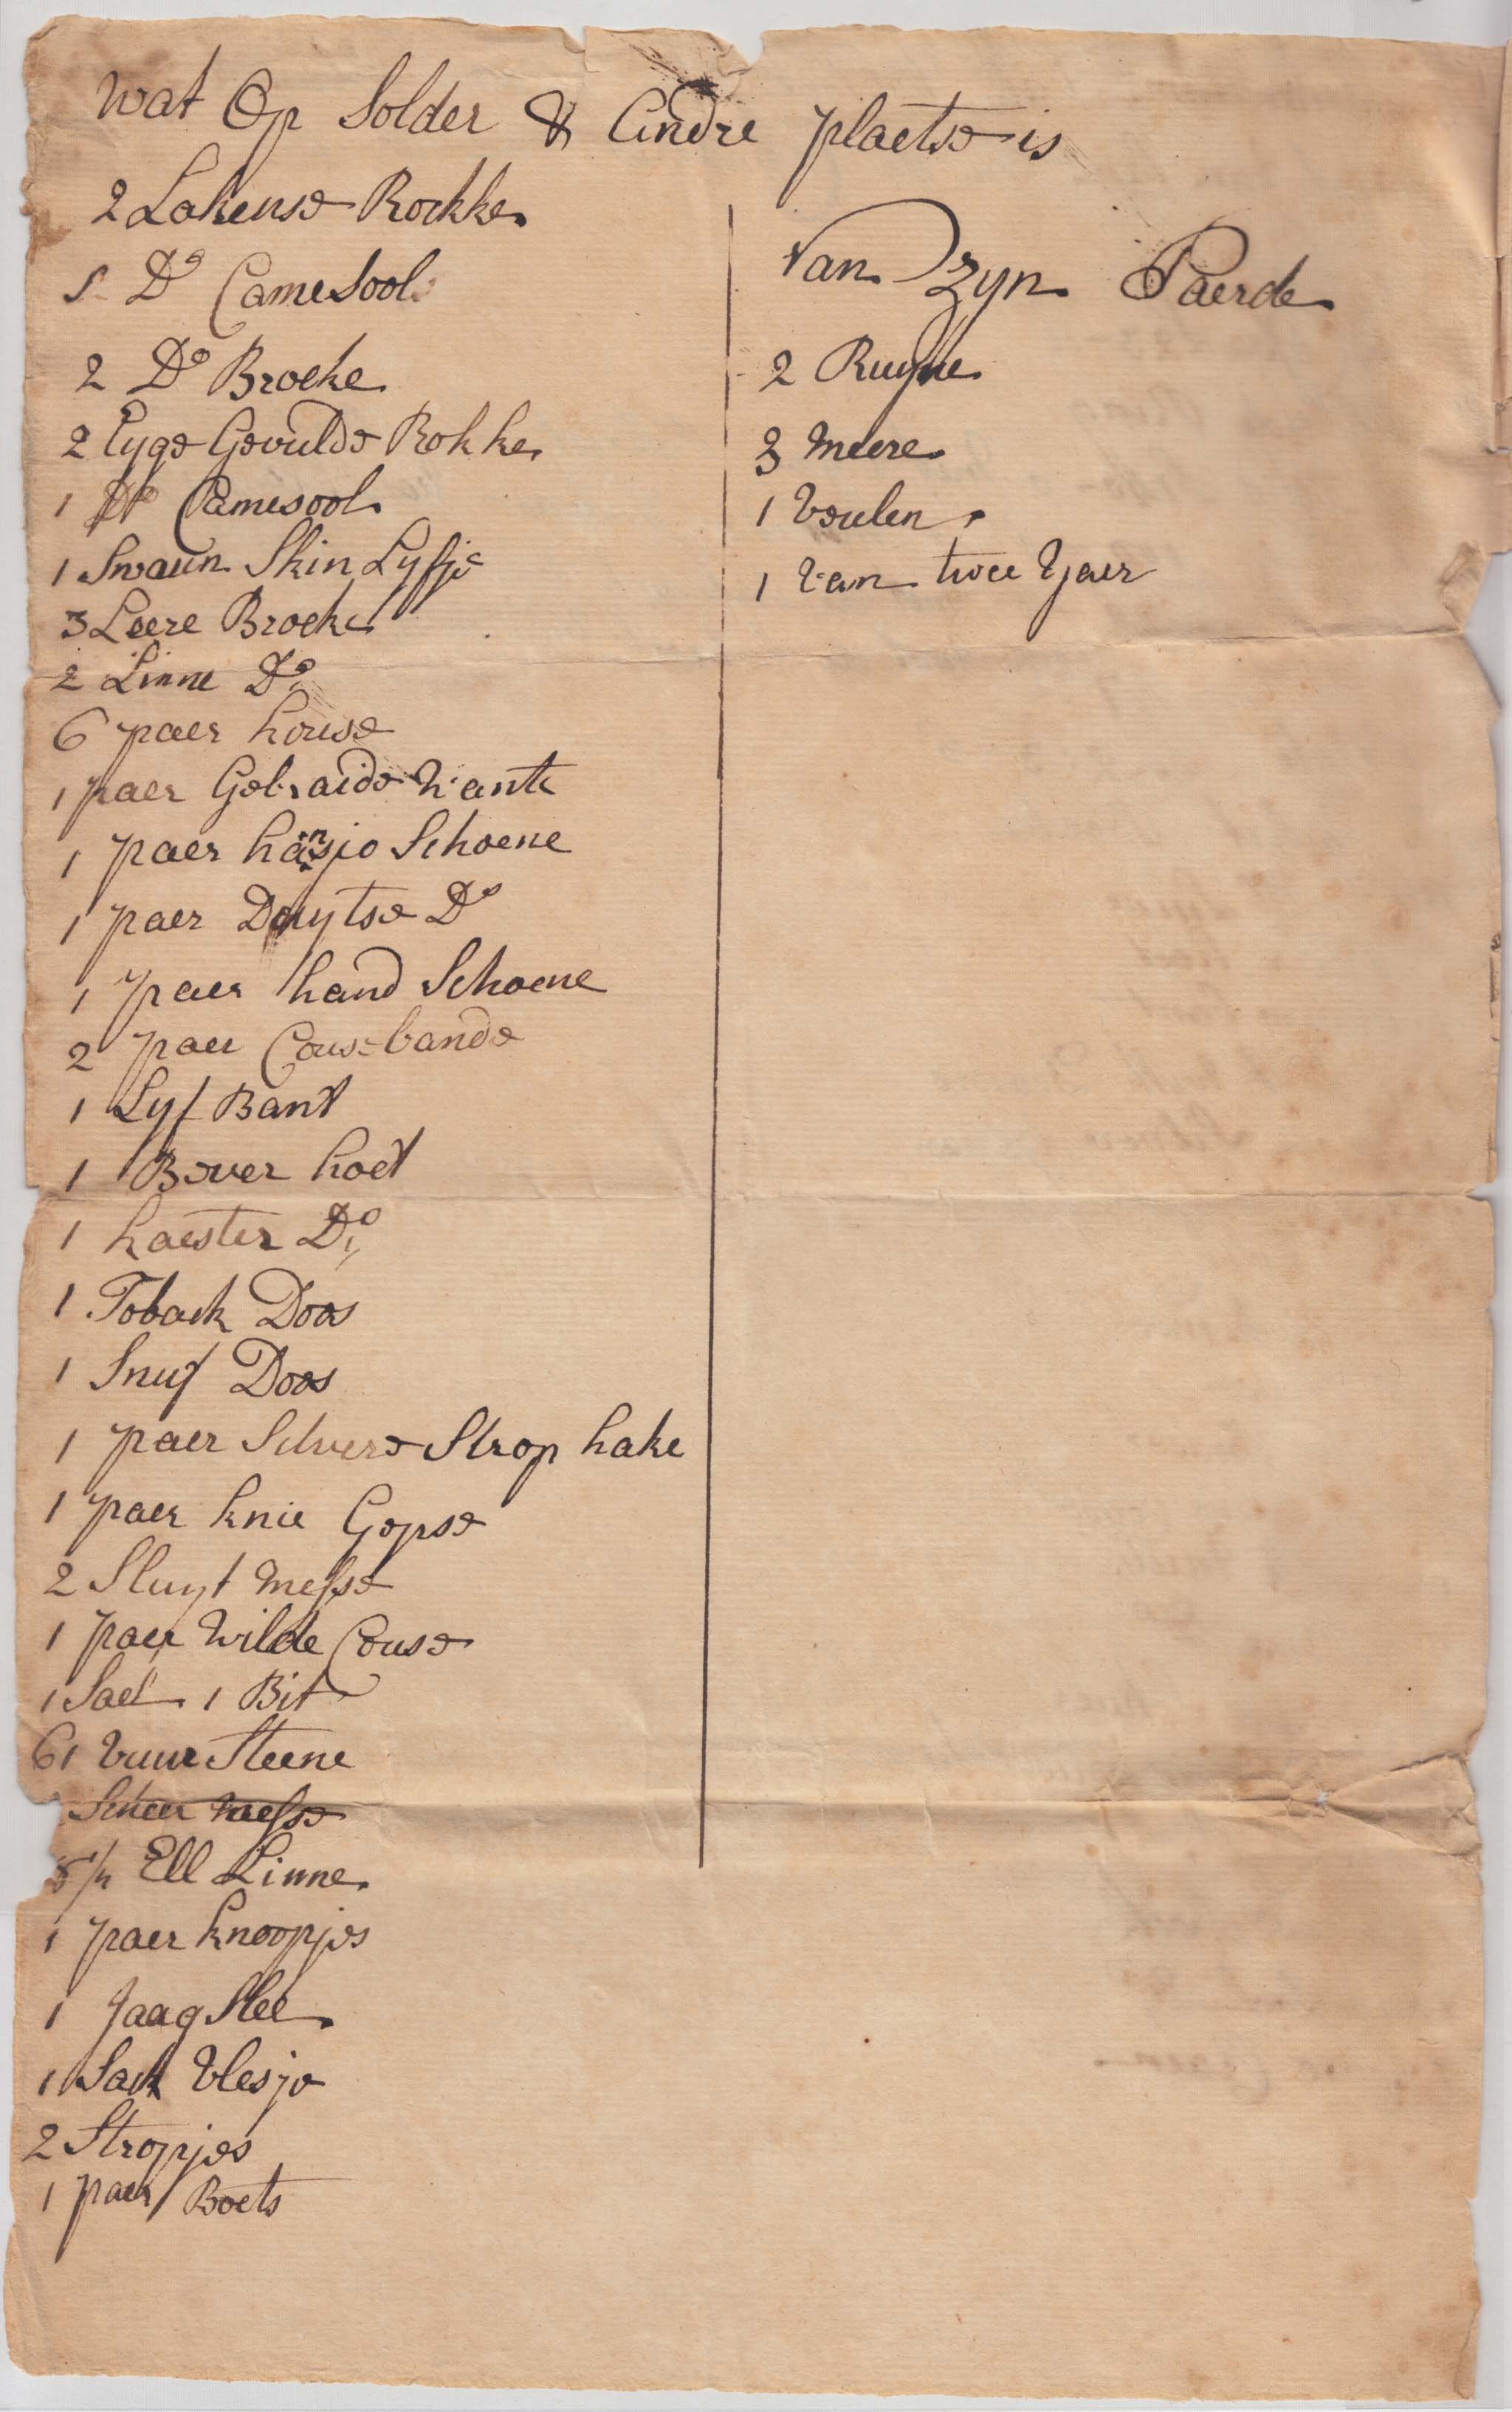 Wat Op Solder & Andre plaetse is
2 Lakense Rockke
5 Do Camesools
2 Do Broeke
2 Eyge Gevulde Rokke
1 Do Camesool
1 Swaun Skin Lyfje
3 Leere Broeke
2 Linne Do
6 paer kouse
1 paer Gebraide Wante
1 paer hansjo Schoene
1 paer Duytse Do
1 paer hand Schoene
2 paer Couse bande
1 Lyf Bant
1 Bever hoet
1 kaester Do
1 Toback Doos
1 Snuf Doos
1 paer Selvere Strop hake
1 paer knie Gepse
2 Sluyt Messe
1 paer Wilde Couse
1 Sael 1 Bit
61 Vuur Steene
Scheer Messe
Ell Linne
1 paer knoopjes
1 Jaag Slee
1 Sack Vlesje
2 Stropjes
1 paer Boets
Van Zyn Paerde
2 Ruyne
3 Meere
1 Veulen
1 Van twee Yaer